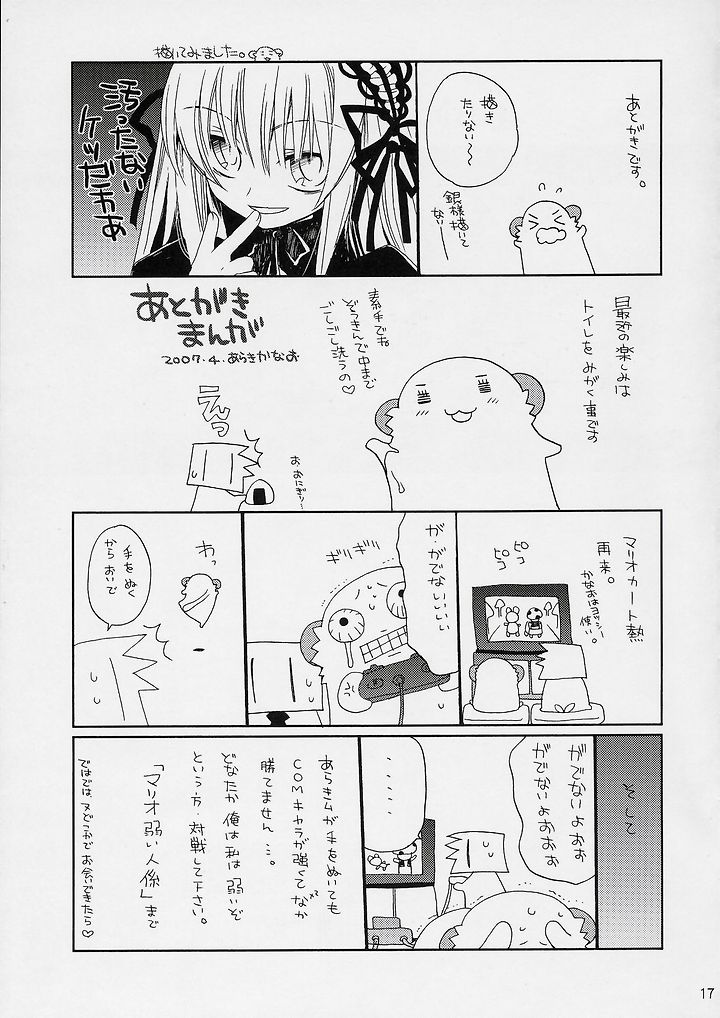 描いてみました。
あとがきです。
描き
たりない〜〜
銀様描いて
ない―
汚ったない
ケツだわぁ
あとがき
まんが
2007.4.あらきかなお
最近の楽しみは
トイレをみがく事です
素手でね
ぞうきんで中まで
ごしごし洗うの♡
えっ
おおにぎり〜
マリオカート熱
再来。
かなおはヨッシー
使い。
ピコ
ピコ
が・がでない
いいいい
ギリギリ
わっ
手をぬく
からおいで
そして
がでないよおぉ
がでないよおぉぉ
・・・・・
あらきムが手をぬいても
COMキャラが強くてなか
勝てません…。
どなたか俺は私は弱いぞ
という方・対戦して下さい。
「マリオ弱い人係」まで
ではでは又どこかでお会いできたら♡
17